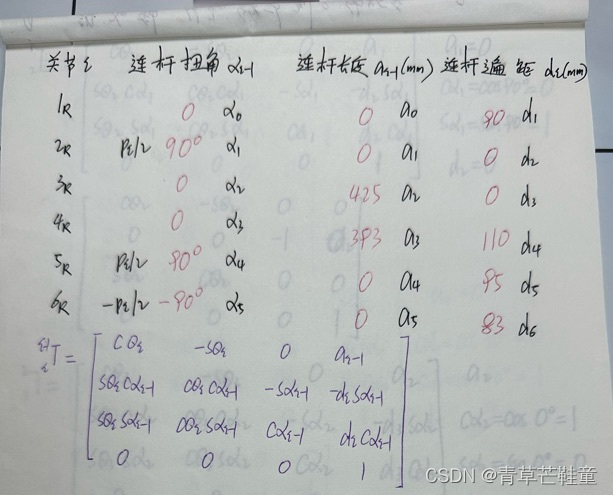 关节i 连杆扭角 αi-1 连杆长度 ai-1(mm) 连杆偏距 di(mm)
1R 0 α0 0 a0 90 d1
2R Pi/2 90° α1 0 a1 0 d2
3R 0 α2 425 a2 0 d3
4R 0 α3 393 a3 110 d4
5R Pi/2 90° α4 0 a4 95 d5
6R -Pi/2 -90° α5 0 a5 83 d6
i-1
iT =
cθi -sθi 0 ai-1
sθicαi-1 cθicαi-1 -sαi-1 -disαi-1
sθisαi-1 cθisαi-1 cαi-1 dicαi-1
0 0 0 1
CSDN @青草芒鞋童